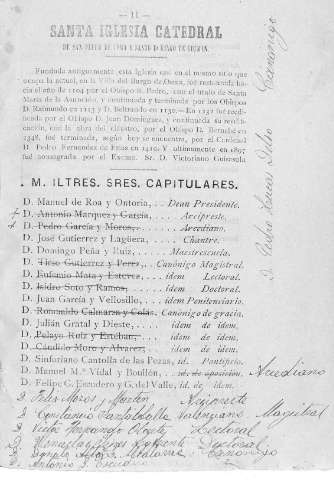 — 11 —
SANTA IGLESIA CATEDRAL
DE SAN PEDRO DE OSMA Ó SANTO DOMINGO DE GUZMAN.
Fundada antiguamente esta Iglesia casi en el mismo sitio que
ocupa la actual, en la Villa del Burgo de Osma, fué restablecida
hacia el año de 1104 por el Obispo D. Pedro, con el título de Santa
María de la Asunción, y continuada y terminada por los Obispos
D. Raimundo en 1143 y D. Beltrando en 1130. En 1232 fué reedi-
ficada por el Obispo D. Juan Dominguez, y continuada su reedi-
ficación, con la obra del claustro, por el Obispo D. Bernabé en
1348, terminada, según hoy se encuentra, por el Cardenal
D. Pedro Fernandez de Frias en 1410. Y ultimamente en 1897
fué consagrada por el Excmo. Sr. D. Victoriano Guisasola
M. ILTRES. SRES. CAPITULARES.
D. Manuel de Roa y Ontoria, .. Dean Presidente.
D. Antonio Marquez y García, .. Arcipreste.
D. Pedro García y Moros, .. Arcediano.
D. José Gutierrez y Lagüera, .. Chantre.
D. Domingo Peña y Ruiz, .. Maestrescuela.
D. Tirso Gutierrez y Perez, .. Canónigo Magistral.
D. Eufemio Mota y Esteve, .. idem Lectoral.
D. Isidro Soto y Ramos, .. idem Doctoral.
D. Juan García y Vellosillo, .. idem Penitenciario.
D. Romualdo Calmarza y Colás, Canónigo de gracia.
D. Julián Gratal y Dieste, .. idem de idem.
D. Pelayo Ruiz y Esteban, .. idem de idem.
D. Cándido Moro y Alvarez, idem de idem.
D. Sinforiano Cantolla de las Pezas, id. Pontificio.
D. Manuel M.ª Vidal y Boullón, id. de oposicion. Arcediano
D. Felipe G. Escudero y G. del Valle, id. de idem.
D. Felix Moros y Martín
D. Constancio Magistral
D. Victor Lectoral
D. Doctoral
D. Canónigo
D. Antonio
D. Pedro Lucas Canonigo